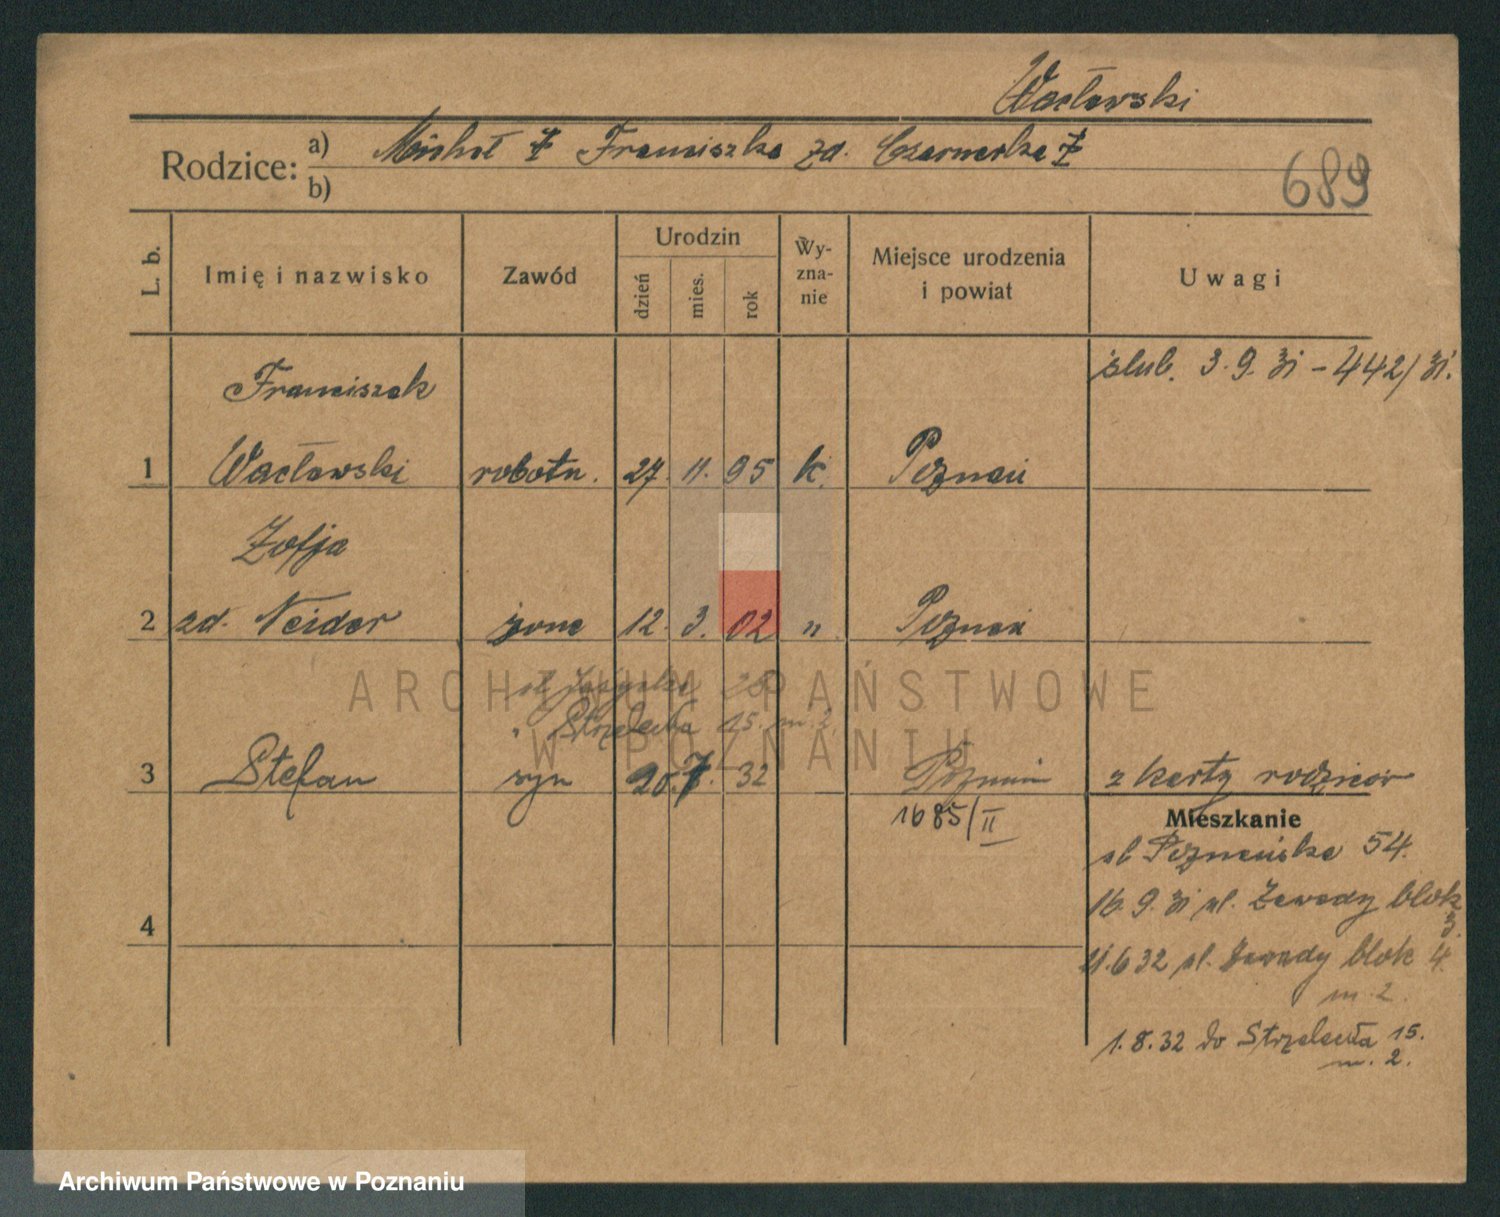 Wacławski
Rodzice: a) Michał ‡ Franciszka zd. Czarnecka ‡
b)
689
L. b.
Imię i nazwisko
Zawód
Urodzin
dzień
mies.
rok
Wy-
zna-
nie
Miejsce urodzenia
i powiat
Uwagi
ślub. 3.9.31 - 442/31.
Franciszek
1 Wacławski robotn. 27. 11. 95 k. Poznań
Zofja
2 zd. Neider żona 12. 3. 02 " Poznań
ul. 28
" Strzelecka 15. m. 2.
3 Stefan syn 20. 7. 32 Poznań z karty rodziców
1685/II
Mieszkanie
ul Poznańska 54.
16.9.31 ul. Zawady blok
3.
21.6 32 ul. Zawady blok 4.
m. 2.
4
1.8.32 do Strzelecka 15.
m. 2.
ARCHIWUM PAŃSTWOWE
W POZNANIU
Archiwum Państwowe w Poznaniu